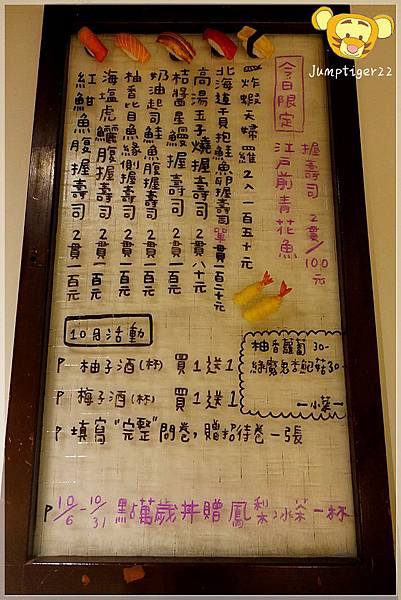 Jumptiger22
今日限定
握壽司 2貫/100元
江戶前青花魚
炸蝦天婦羅 2入一百五十元
北海道干貝抱鮭魚卵握壽司 單貫一百二十元
高湯玉子燒握壽司 2貫八十元
桔醬星鰻握壽司 2貫一百元
奶油起司鮭魚腹握壽司 2貫一百元
柚香比目魚緣側握壽司 2貫一百元
海塩虎鱺腹握壽司 2貫一百元
紅魽魚腹握壽司 2貫一百元
10月活動
P 柚子酒(杯) 買1送1
P 梅子酒(杯) 買1送1
P 填寫"完整"問卷,贈招待卷一張
柚香蘿蔔 30-
綠魔鬼杏鮑菇30-
一小菜一
P 10/6-10/31 點萬歲丼贈鳳梨冰茶一杯